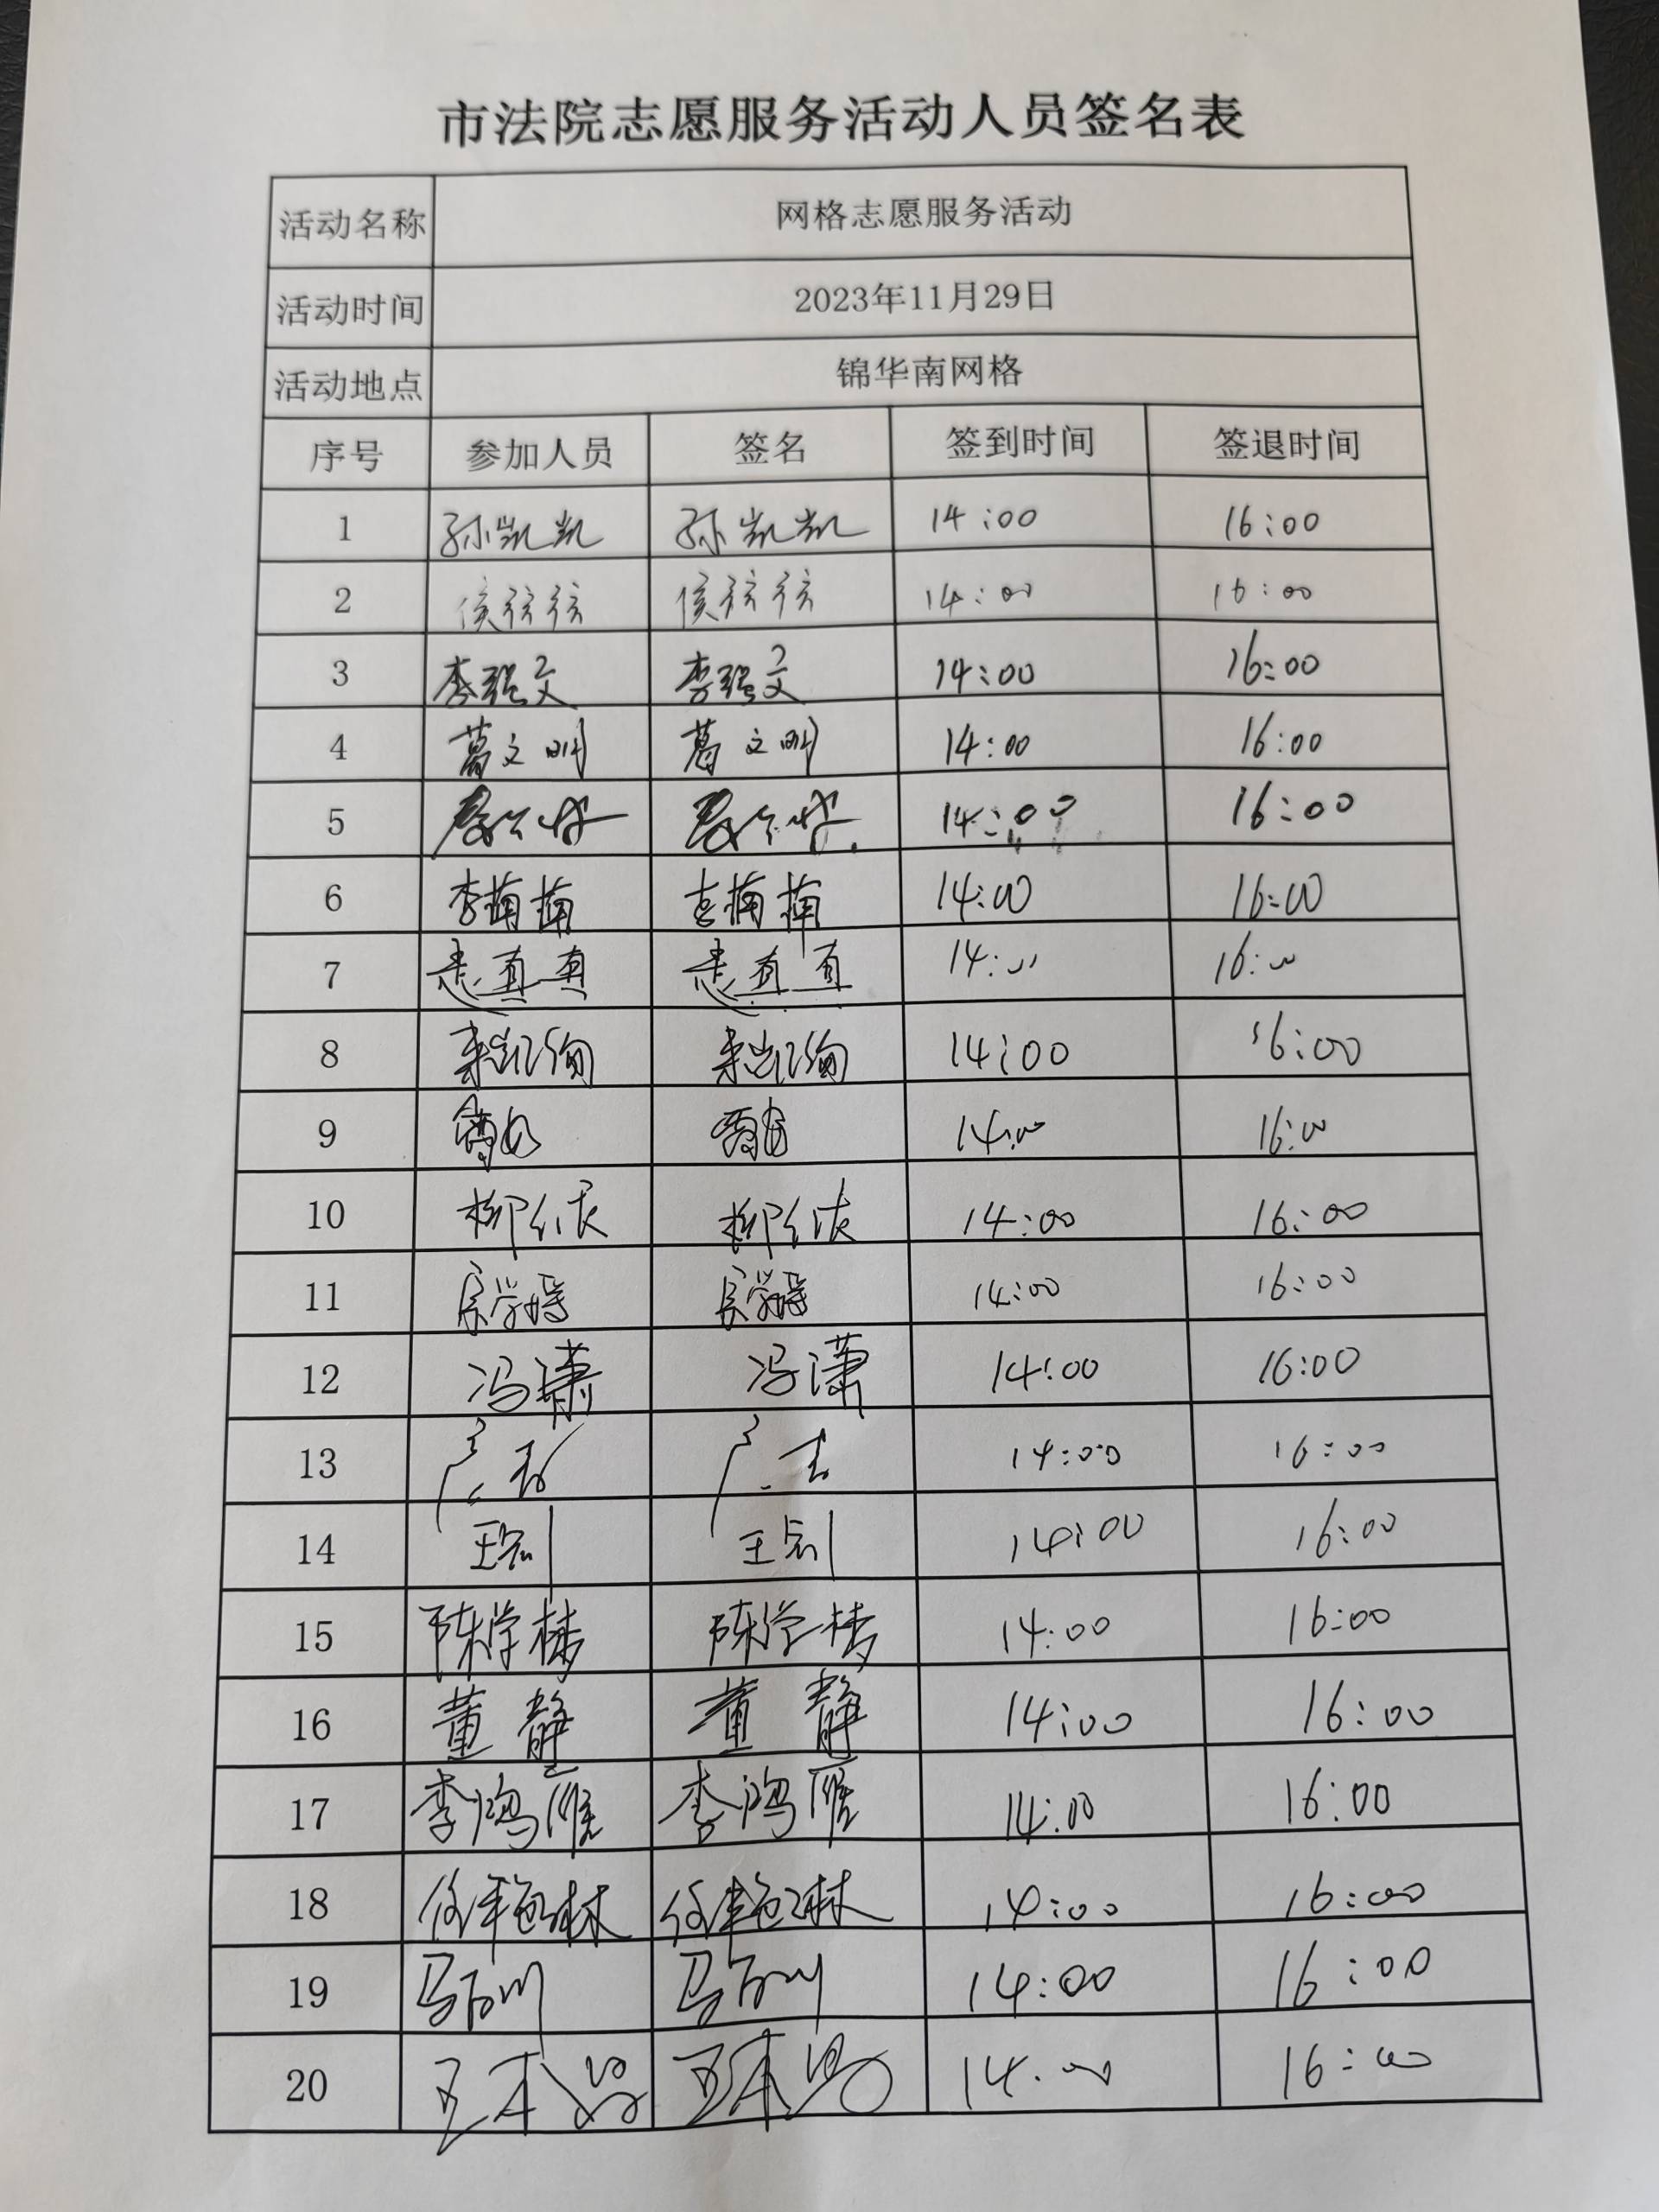 市法院志愿服务活动人员签名表
活动名称 网格志愿服务活动
活动时间 2023年11月29日
活动地点 锦华南网格
序号 参加人员 签名 签到时间 签退时间
1 孙凯凯 孙凯凯 14:00 16:00
2 侯弦弦 侯弦弦 14:00 16:00
3 李强文 李强文 14:00 16:00
4 葛文明 葛文明 14:00 16:00
5 14:00 16:00
6 李楠楠 李楠楠 14:00 16:00
7 惠真真 惠真真 14:00 16:00
8 来凯绚 来凯绚 14:00 16:00
9 14:00 16:00
10 14:00 16:00
11 14:00 16:00
12 冯潇 冯潇 14:00 16:00
13 14:00 16:00
14 王 王 14:00 16:00
15 陈学栋 陈学栋 14:00 16:00
16 董静 董静 14:00 16:00
17 李鸿雁 李鸿雁 14:00 16:00
18 14:00 16:00
19 14:00 16:00
20 14:00 16:00